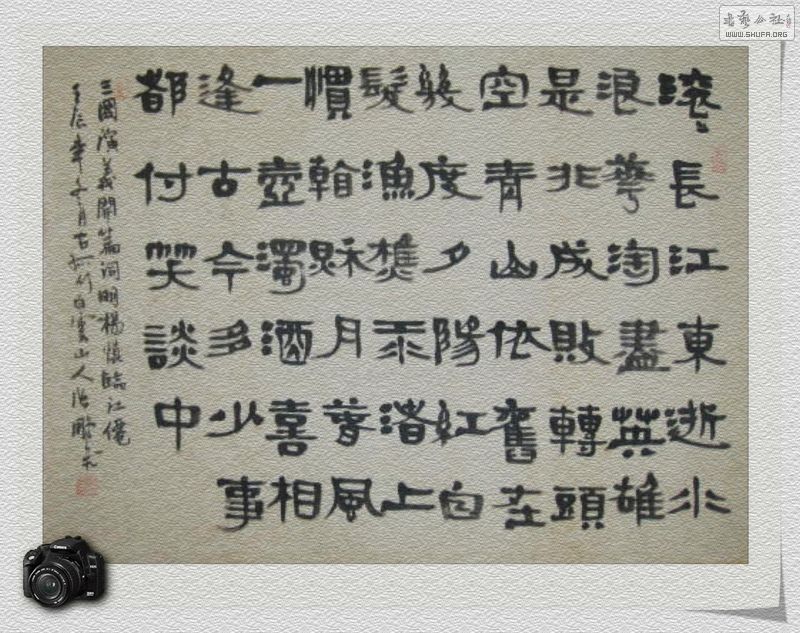 滚〻長江東逝水
浪華淘盡英雄
是非成敗轉頭
空青山依舊在
幾度夕陽紅白
髮漁樵渚上
慣看秋月春風
一壺濁酒喜相
逢古今多少事
都付笑談中
三國演義開篇詞明楊慎臨江僊
壬辰年子月古白雲山人浩鵬
书艺公社
WWW.SHUFA.ORG
Canon